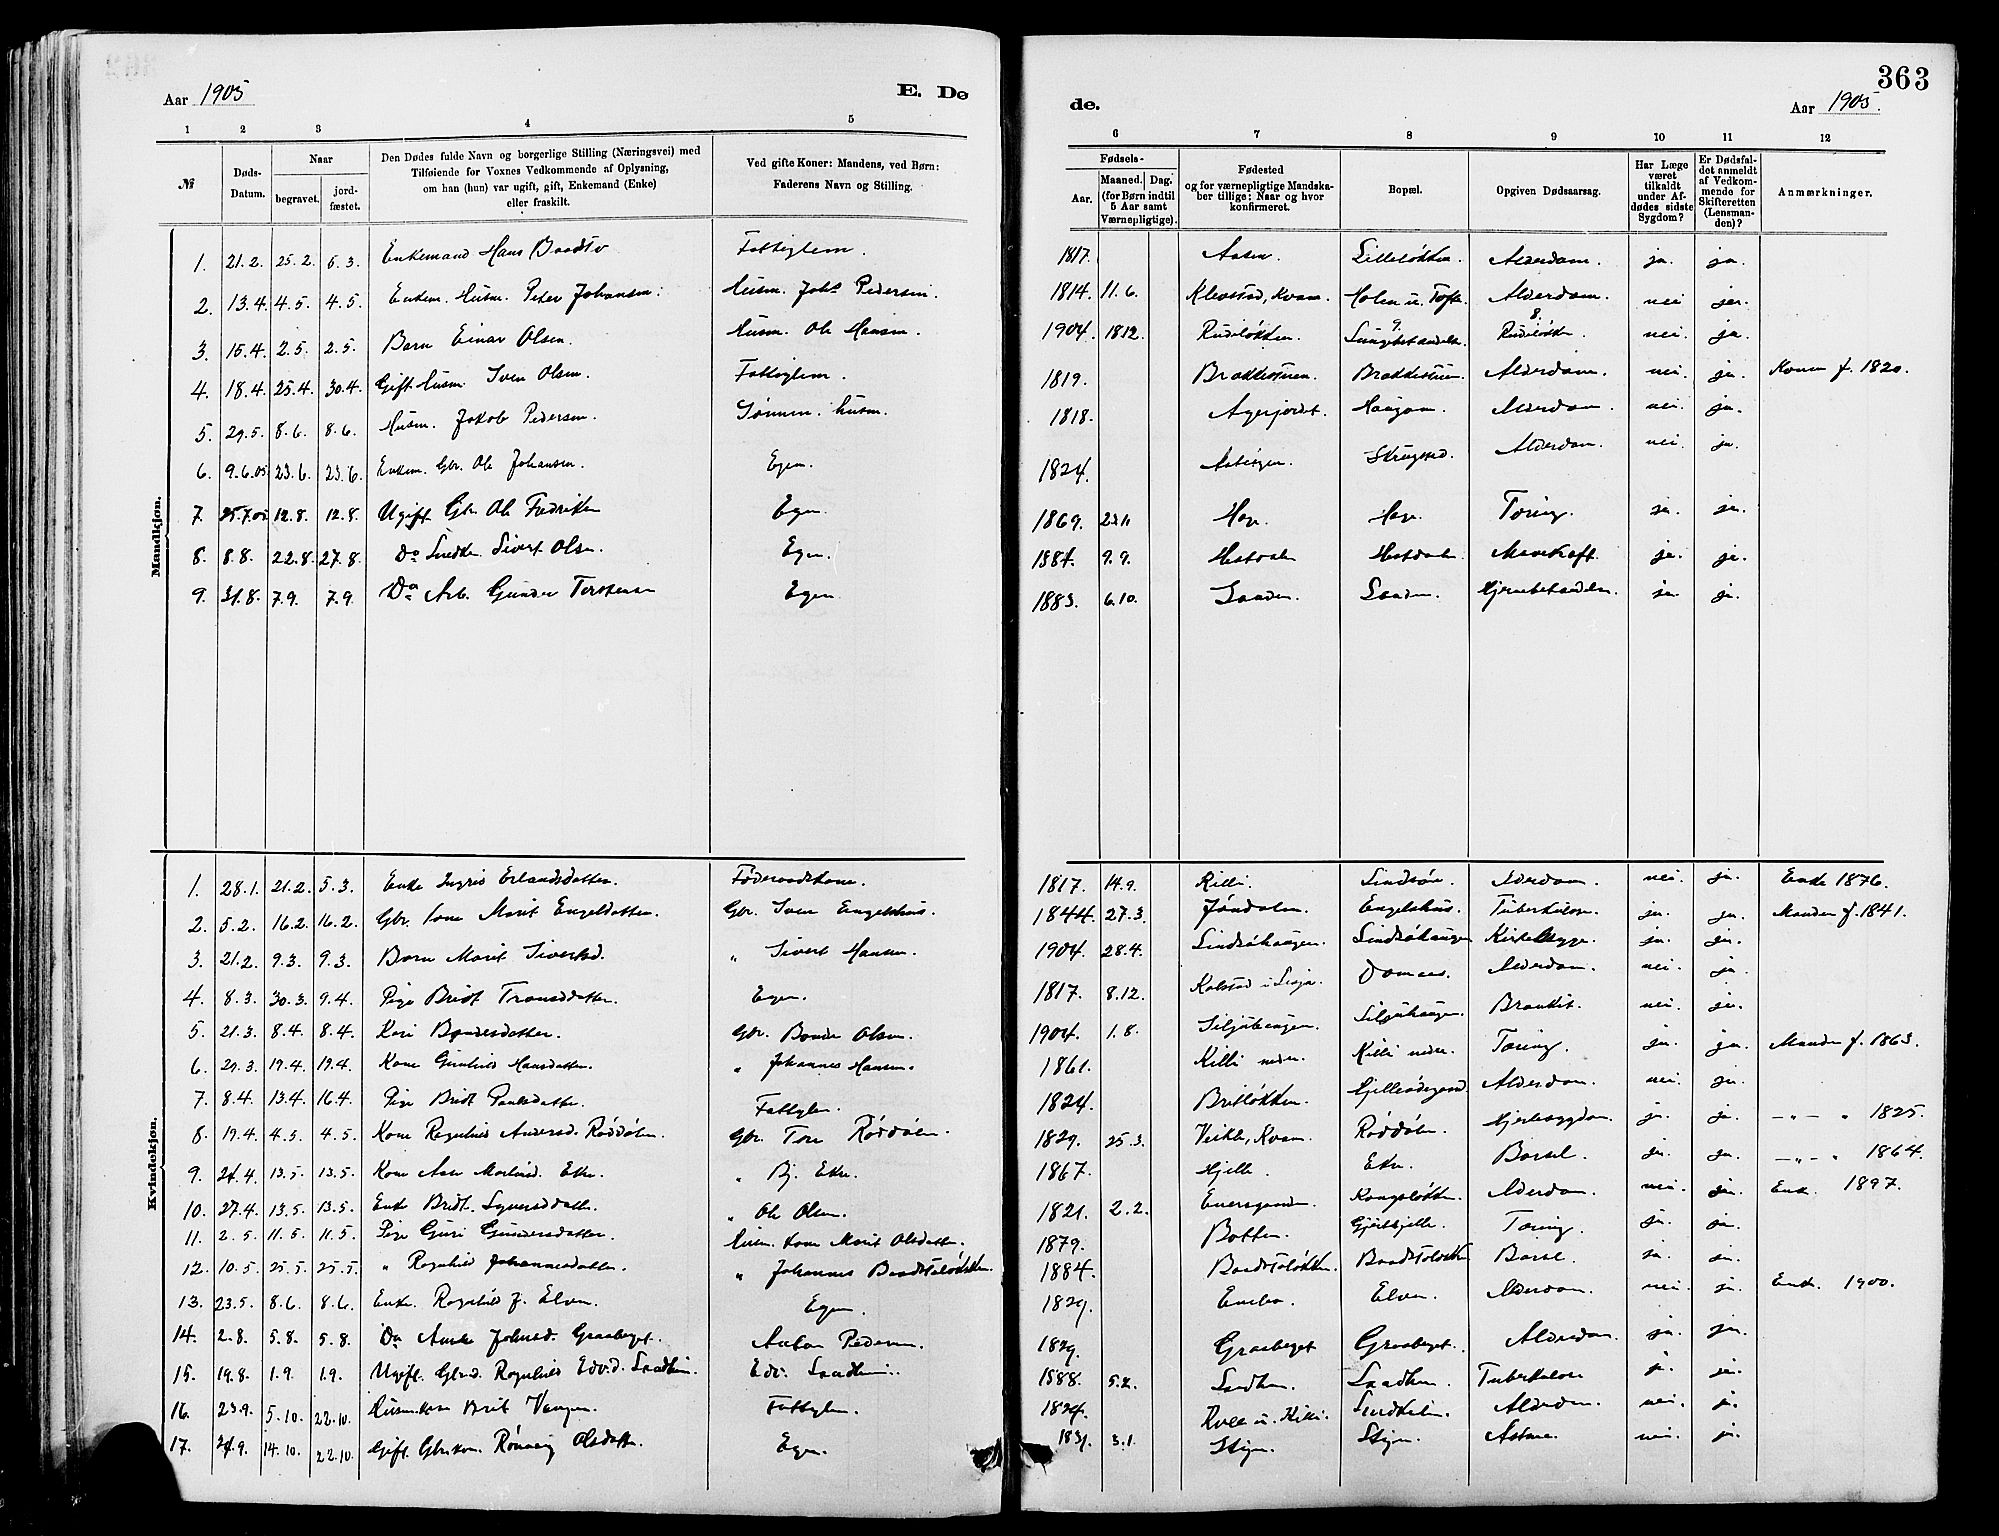 363
Aar 1905
E. Dø
de.
Aar 1905.
1 2 3 4 5
6 7 8 9 10 11 12
№
Døds-Datum.
Naar
begravet.
jord-fæstet.
Den Dødes fulde Navn og borgerlige Stilling (Næringsvei) med
Tilføiende for Voxnes Vedkommende af Oplysning,
om han (hun) var ugift, gift, Enkemand (Enke)
eller fraskilt.
Ved gifte Koner: Mandens, ved Børn:
Faderens Navn og Stilling.
Fødsels-
Aar.
Maaned. Dag.
(for Børn indtil
5 Aar samt
Værnepligtige).
Fødested
og for værnepligtige Mandska-
ber tillige: Naar og hvor
konfirmeret.
Bopæl.
Opgiven Dødsaarsag.
Har Læge
været
tilkaldt
under Af-
dødes sidste
Sygdom?
Er Dødsfal-
det anmeldt
af Vedkom-
mende for
Skifteretten
(Lensman-
den)?
Anmærkninger.
Mandkjøn.
1. 21.2. 25.2. 5.3. Enkemand Hans Fattiglem. 1817. Aasen. Lilleløkken. Alderdom. ja. ja.
2. 13.4. 4.5. 4.5. Enkem. Husm. Peter Johansen. Husm. Johs Pedersen. 1814. 11.6. Klevstad, Kvam. Alderdom. nei ja.
3. 15.4. 2.5. 2.5. Barn Einar Olsen. Husm. Ole Hansen. 1904. 18.12. Rudiløkken. nei. ja.
4. 18.4. 25.4. 30.4. Gift Husm Iver Olsen. Fattiglem. 1819. Brækkestuen. Brækkestuen. Alderdom. nei. ja. Konen f. 1820.
5. 29.5. 8.6. 8.6. Husm. Jakob Pedersen. husm. 1818. Agerjordet. Haugom. Alderdom. nei. ja.
6. 9.6.05 23.6. 23.6. Enkem. Gbr. Ole Johansen. Egen. 1824. Alderdom. nei. ja.
7. 25.7.05 12.8. 12.8. Ugift Gbr. Ole Egen. 1869. Hage. Hage. Tæring. ja. ja.
8. 8.8. 22.8. 27.8. Do Sivert Olsen. Egen. 1884. 9.9. ja. ja.
9. 31.8. 7.9. 7.9. Do Arb. Gunder Torstensen Egen 1883. 6.10. Sanden. Sanden. Hjernebetændelse. ja. ja.
Kvindekjøn.
1. 28.1. 21.2. 5.3. Enke Ingrid Erlandsdatter. Føderaadskone. 1817. 14.9. Killi. Lindsøe. Alderdom. nei. ja. Enke 1876.
2. 5.2. 16.2. 16.2. Gbr. Kone Marit Engelsdatter. Gbr. Iver Engelshus. 1844. 27.3. Jøndalen. Engelshus. Tuberkulose. ja. ja. Manden f. 1841.
3. 21.2. 9.3. 9.3. Barn Marit Sivertsd. „ Sivert Hansen. 1904. 28.4. Lindsøhaugen. Lindsøhaugen ja. ja.
4. 8.3. 30.3. 9.4. Pige Brit Egen. 1817. 8.12. Kolstad i Lesja. Domaas. Alderdom. nei. ja.
5. 21.3. 8.4. 8.4. Kari Bondesdatter. Gbr. Bonde Olsen. 1904. 1.8. Siljuhaugen. Siljuhaugen. Bronkit. nei. ja.
6. 29.3. 19.4. 19.4. Kone Gunhild Hansdatter. „ Johannes Hansen. 1861. Killi nedre. Killi nedre. Tæring. ja. ja. Manden f. 1863.
7. 8.4. 13.4. 16.4. Pige Brit Paulsdatter. Fattiglem. 1824. Britløkken. Alderdom. nei. ja.
8. 19.4. 4.5. 4.5. Kone Ragnhild Andersd. Røddølen. Gbr. Tore Røddølen. 1829. 25.3. Veikle, Kvam. Røddølen. Hjertesygdom. ja. ja. —„— „ 1825.
9. 24.4. 13.5. 13.5. Kone Ekre. „ Bj. Ekre. 1867. Hjelle. Ekre. Barsel. ja. ja. —„— „ 1864.
10. 27.4. 13.5. 13.5. Enke Brit Syversdatter. „ Ole Olsen. 1821. 2.2. Kongsløkken. Alderdom. nei. ja. Enke 1897.
11. 2.5. 11.5. 11.5. Pige Guri Gundersdatter. Husm. Kone Marit Olsdatter. 1879. Botten. Tæring. ja. ja.
12. 10.5. 25.5. 25.5. „ Ragnhild Johannesdatter. „ Johannes Baadstøløkken. 1884. Baadstøløkken. Baadstøløkken Barsel. ja. ja.
13. 23.5. 8.6. 8.6. Enke Ragnhild J. Elven. Egen. 1829. Elven. Alderdom. nei ja. Enke 1900.
14. 2.8. 5.8. 5.8. Do Graaberget. Pedersen. 1829. Graaberget Graaberget. Alderdom. ja. ja.
15. 19.8. 1.9. 1.9. Ugift. Ragnhild Edv.d. Sandheim. Edv. Sandheim. 1888. 5.2. Sandheim. Sandheim. Tuberkulose ja. ja.
16. 23.9. 5.10. 22.10. Husm.kone Brit Vangen. Fattiglem. 1824. Alderdom. nei. ja.
17. 24.9. 14.10. 22.10. Gift Gbr.kone Rønnaug Olsdatter. Egen 1831. 3.1. Stigen. Stigen. Astma. nei. ja.